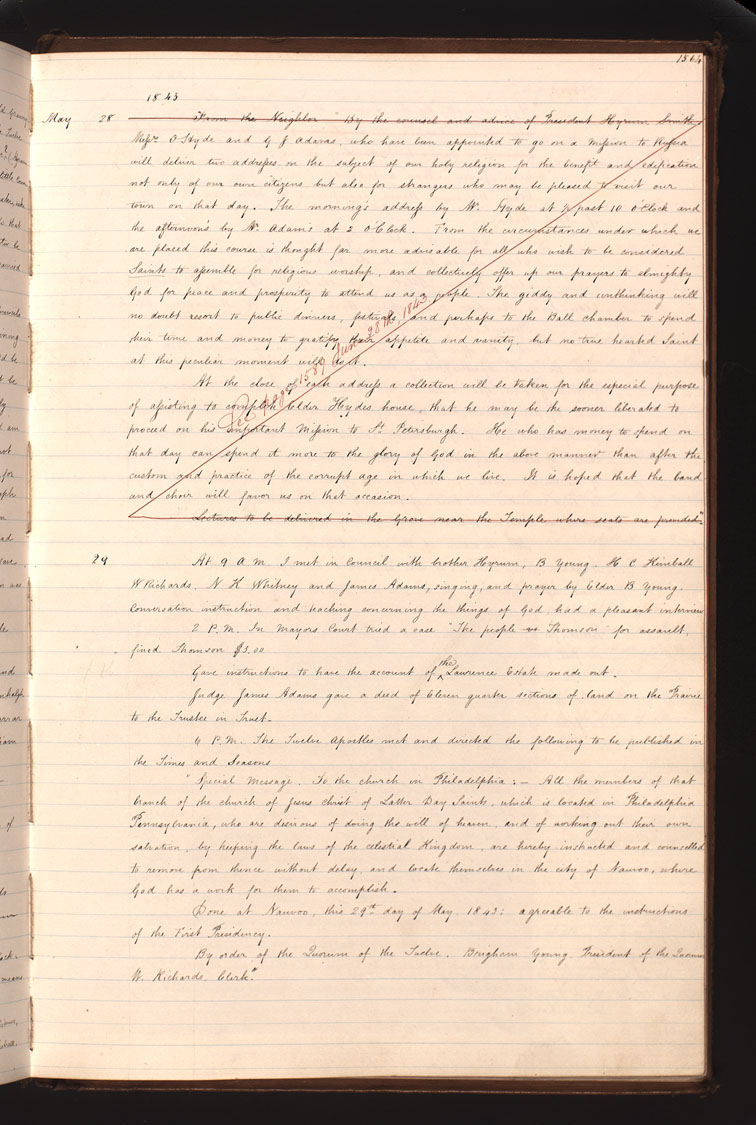 1564
1843
May 28 "From the Neighbor" "By the counsel and advice of President Hyrum Smith,
Messrs. O Hyde and G J Adams, who have been appointed to go on a mission to Russia
will deliver two addresses on the subject of our holy religion for the benefit and edification
not only of our own citizens but also for strangers who may be pleased to visit our
town on that day. The morning's address by Mr. Hyde at ½ past 10 o'Clock and
the afternoon's by Mr. Adams at 2 o'Clock. From the circumstances under which we
are placed this course is thought far more advisable for all who wish to be considered
Saints to assemble for religious worship, and collectively offer up our prayers to almighty
God for peace and prosperity to attend us as a people. The giddy and unthinking will
no doubt resort to public dinners, festivals, and perhaps to the Ball chamber to spend
their time and money to gratify their appetite and vanity, but no true hearted Saint
at this peculiar moment will do it.
See page 1589 June 28th. 1843
At the close of each address a collection will be taken for the especial purpose
of assisting to complete Elder Hydes house, that he may be the sooner liberated to
proceed on his important Mission to St. Petersburgh. He who has money to spend on
that day can spend it more to the glory of God in the above manner than after the
custom and practice of the corrupt age in which we live. It is hoped that the band
and choir will favor us on that occasion.
Lectures to be delivered in the Grove near the Temple where seats are provided"
29 At 9 A.M. I met in Council with brother Hyrum, B Young, H C Kimball
W Richards, N K Whitney and James Adams, singing, and prayer by Elder B Young.
Conversation instruction and teaching concerning the things of God had a pleasant interview
2 P.M. In Mayors Court tried a case "The people vs Thomson" for assault,
fined Thomson $3.00
Gave instructions to have the account of the Lawrence Estate made out.
Judge James Adams gave a deed of Eleven quarter sections of land on the Prairie
to the Trustee in Trust.
4 P.M. The Twelve Apostles met and directed the following to be published in
the Times and Seasons
"Special Message. To the church in Philadelphia:— All the members of that
branch of the church of Jesus christ of Latter Day Saints, which is located in Philadelphia
Pennsylvania, who are desirous of doing the will of heaven, and of working out their own
salvation, by keeping the laws of the celestial Kingdom, are hereby instructed and counselled
to remove from thence without delay, and locate themselves in the city of Nauvoo, where
God has a work for them to accomplish.
Done at Nauvoo, this 29th day of May, 1843: agreeable to the instructions
of the First Presidency.
By order of the Quorum of the Twelve. Brigham Young, President of the Quorum
W. Richards, Clerk."